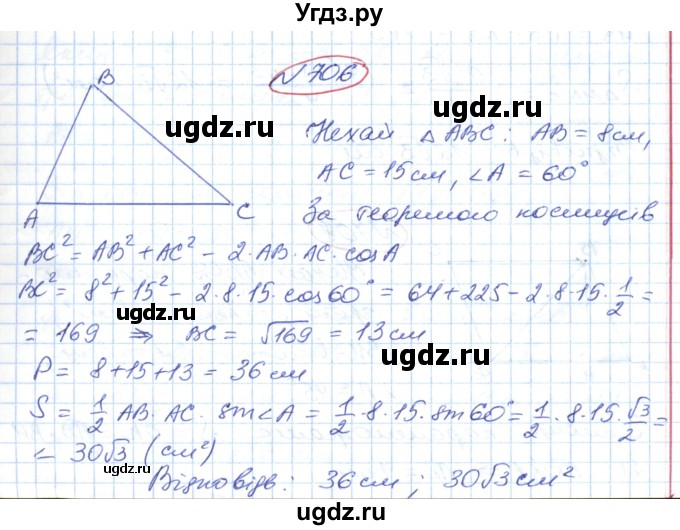 Угдз.ру
№706
B
ugdz.ru
ugdz.ru
Нехай △ABC: AB = 8см,
ugdz.ru
AC = 15см, ∠A = 60°
A
C
За теоремою косинусів
ugdz.ru
BC² = AB² + AC² - 2·AB·AC·cosA
BC² = 8² + 15² - 2·8·15·cos60° = 64 + 225 - 2·8·15·1/2 =
ugdz.ru
= 169 ⇒ BC = √169 = 13см
ugdz.ru
P = 8+15+13 = 36см
S = 1/2 AB·AC·sin∠A = 1/2·8·15·sin60° = 1/2·8·15·√3/2 =
ugdz.ru
ugdz.ru
= 30√3 (см²)
Відповідь: 36см; 30√3см²
ugdz.ru